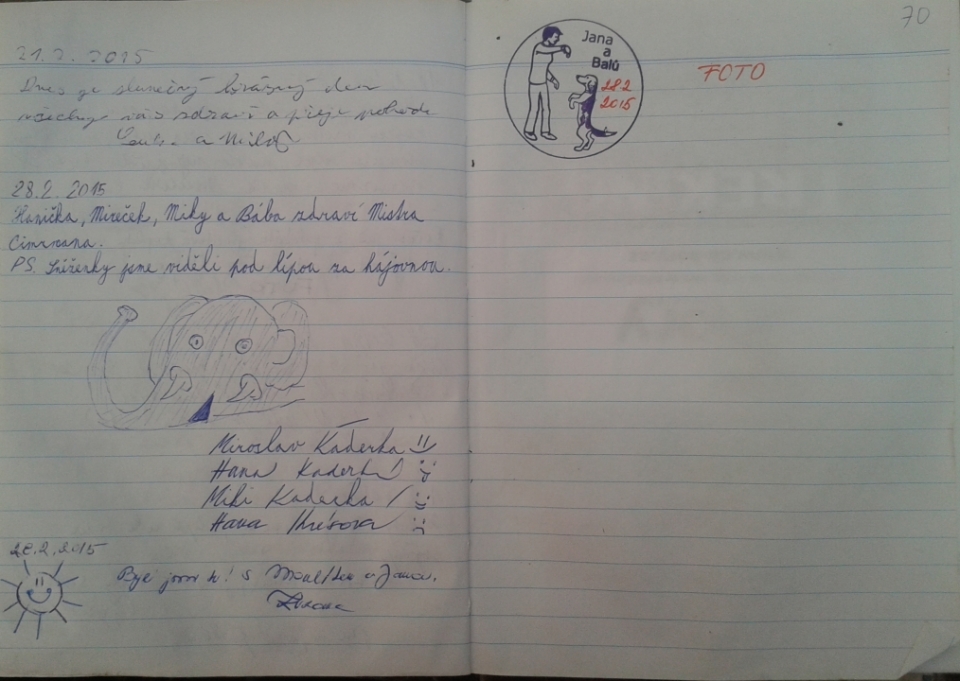 21.2.2015
Dnes je slunečný krásný den
všechny vás zdraví a přeje pohodu
a Miloš
28.2.2015
Hanička, Mireček, Miky a Bába zdraví Mistra
Cimrmana.
PS. Sněženky jsme viděli pod lípou za hájovnou.
Miroslav Kaderka
Hana Kaderk
Miki Kaderka
Hana
28.2.2015
Byli jsme tu! S a Janou.
70
Jana
a
Balú
28.2
2015
FOTO